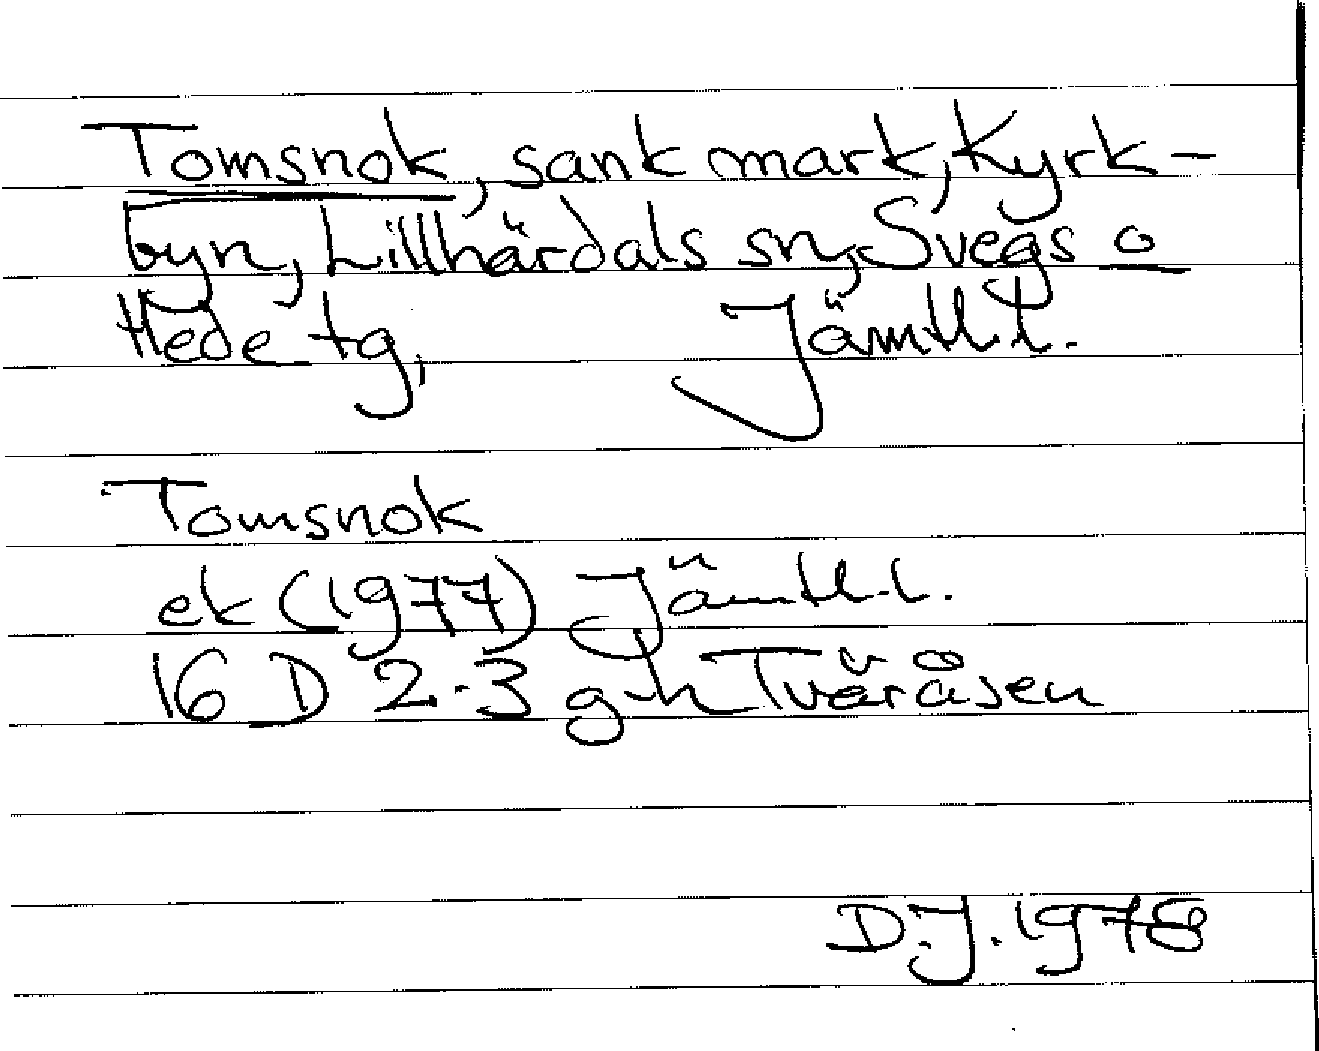 Tomsnok, sank mark, Kyrk-
byn, Lillhärdals sn, Svegs o
Hede tg, Jämtl. l.
Tomsnok
ek (1977) Jämtl. l.
16 D 2-3 g-h Tväråsen
D.J. 1978